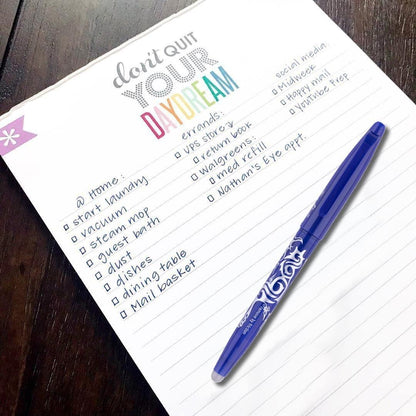 don't QUIT
YOUR
DAYDREAM
@ Home:
start laundry
vacuum
steam mop
guest bath
dust
dishes
dining table
Mail basket
errands:
UPS store
return book
Walgreens:
med refill
Nathan's Eye appt.
social media
Midweek
Happy mail
YouTube Prep